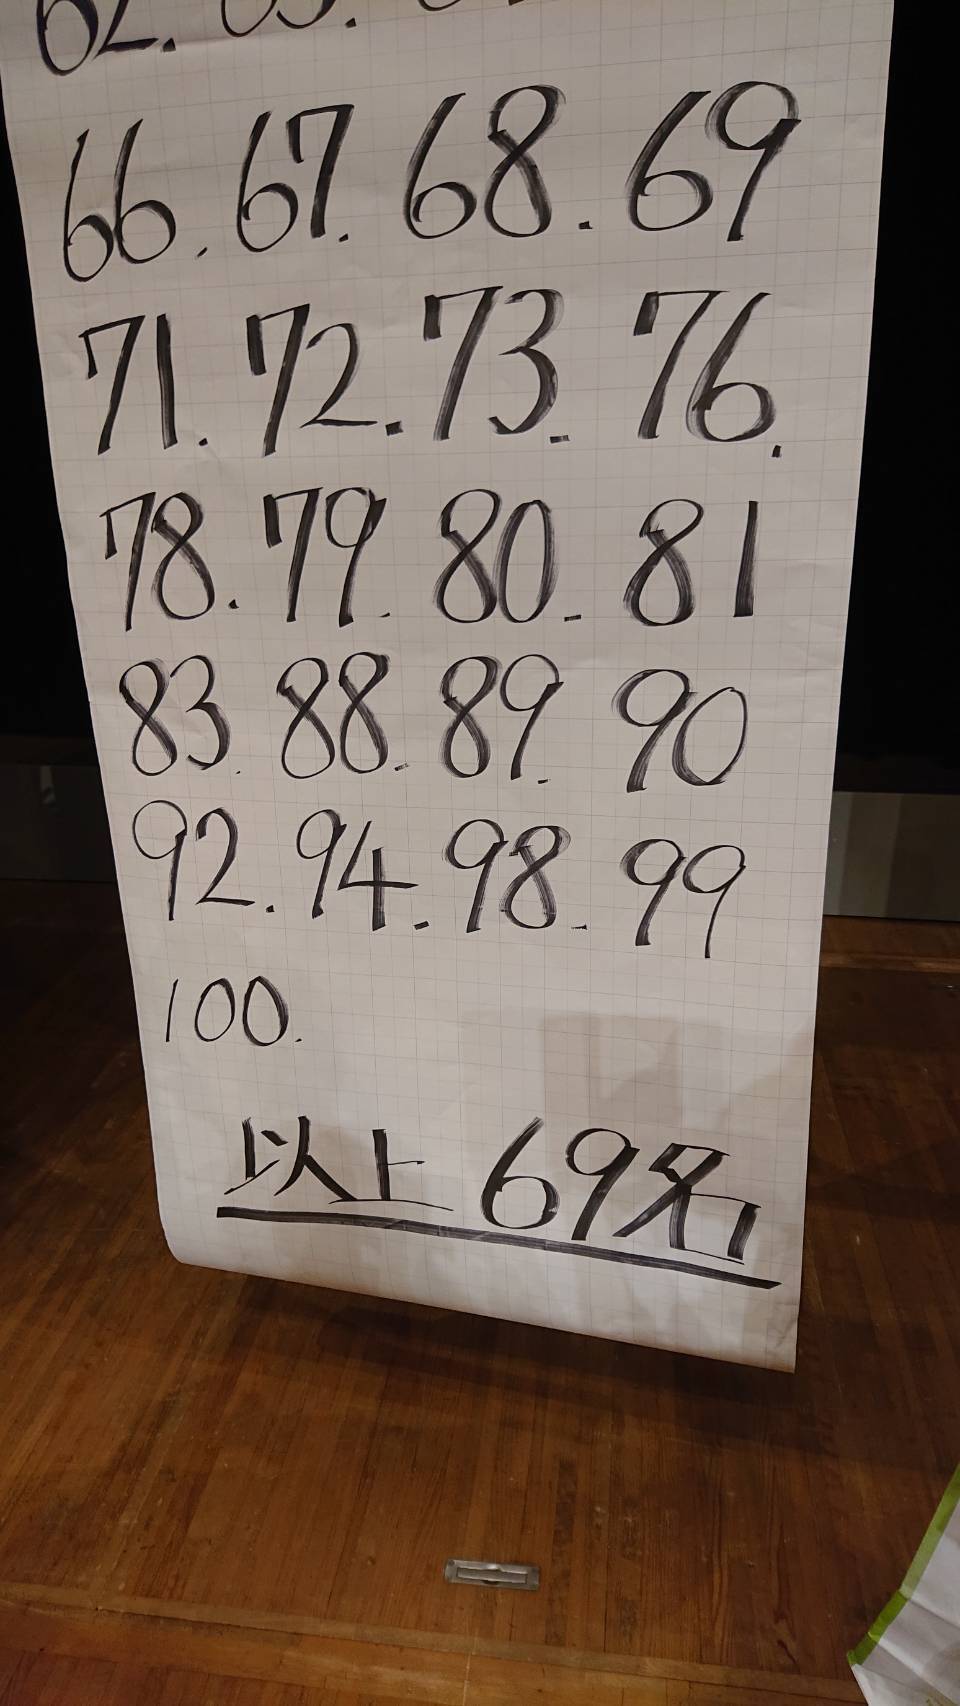 62.
66.67.68.69
71.72.73.76.
78.79.80.81
83.88.89.90
92.94.98.99
100.
以上69名